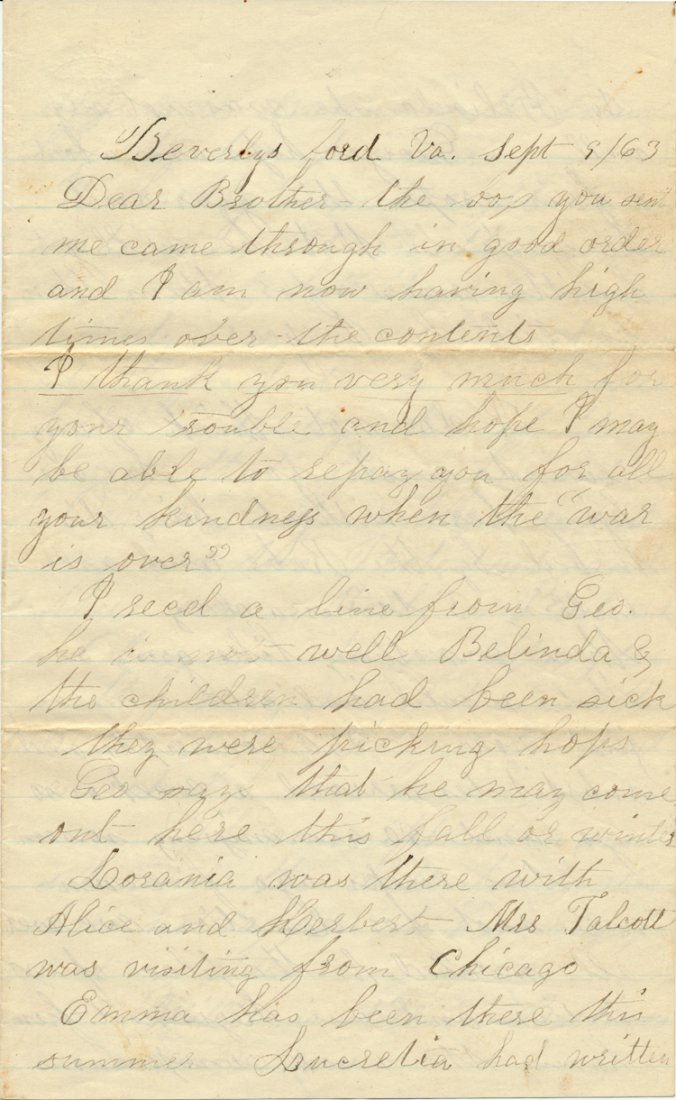 Beverlys ford Va. Sept 9/63
Dear Brother - the box you sent
me came through in good order
and I am now having high
times over the contents
I thank you very much for
your trouble and hope I may
be able to repay you for all
your kindness when the "war
is over"
I recd a line from Geo.
he is not well Belinda &
the children had been sick
they were picking hops
Geo says that he may come
out here this fall or winter
Lorania was there with
Alice and Herbert Mrs Talcott
was visiting from Chicago
Emma has been there this
summer Lucretia had written